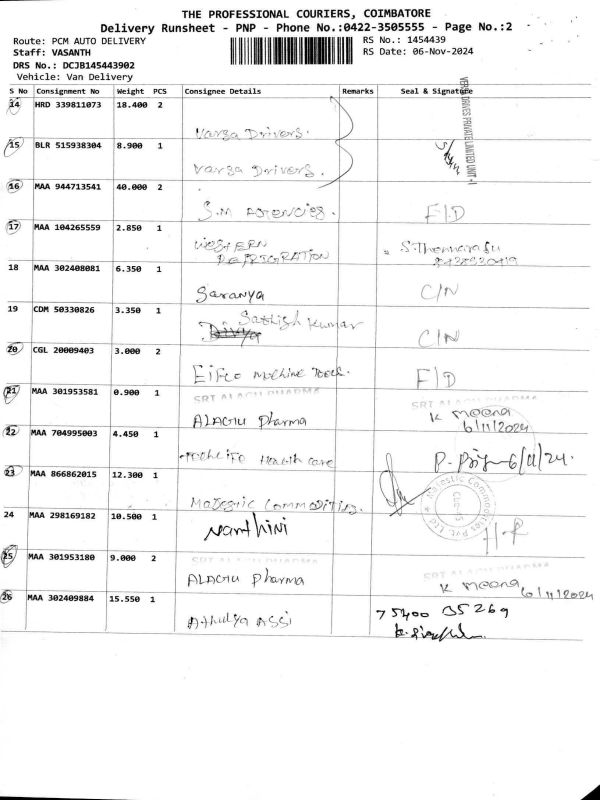 THE PROFESSIONAL COURIERS, COIMBATORE
Delivery Runsheet - PNP - Phone No.:0422-3505555 - Page No.:2
Route: PCM AUTO DELIVERY
RS No.: 1454439
Staff: VASANTH
RS Date: 06-Nov-2024
DRS No.: DCJB145443902
Vehicle: Van Delivery
S No Consignment No Weight PCS Consignee Details Remarks Seal & Signature
14 HRD 339811073 18.400 2 Varga Drivers.
15 BLR 515938304 8.900 1 Varga Drivers.
16 MAA 944713541 40.000 2 S.M AGENCIES. F/D
17 MAA 104265559 2.850 1 WESTERN
18 MAA 302408081 6.350 1 Saranya C/N
19 CDM 50330826 3.350 1 Sathish Kumar C/N
20 CGL 20009403 3.000 2 Eifco Machine Tools. F/D
21 MAA 301953581 0.900 1 ALAGHU Pharma K Meena
6/11/2024
22 MAA 704995003 4.450 1 Health care 6/11/24.
23 MAA 866862015 12.300 1 Majestic Commodities.
24 MAA 298169182 10.500 1 Nanthini
25 MAA 301953180 9.000 2 ALAGHU Pharma K Meena 6/11/2024
26 MAA 302409884 15.550 1 Athulya ASSI 75400 35269